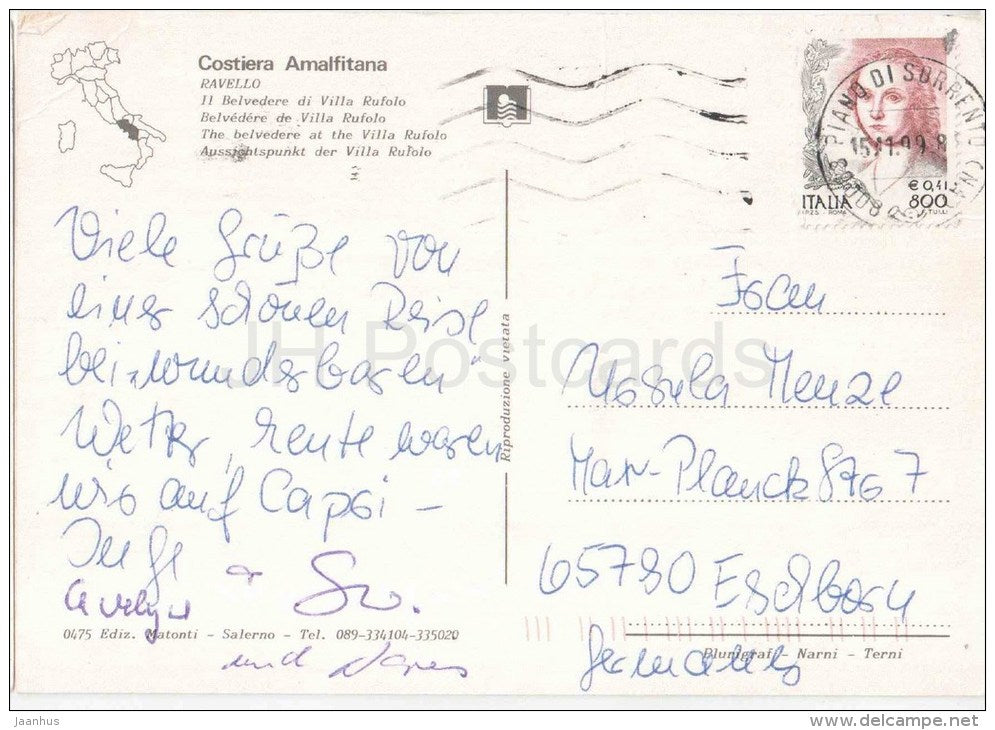 Costiera Amalfitana
RAVELLO
Il Belvedere di Villa Rufolo
Belvédére de Villa Rufolo
The belvedere at the Villa Rufolo
Aussichtspunkt der Villa Rufolo
PIANO DI SORRENTO (NA)
15.11.99.8
€ 0,41
ITALIA 800
I.P.Z.S. - ROMA
Viele Grüße von
einer schönen Reise
bei "wunderbaren"
Wetter, heute waren
wir auf Capri –
Inge
Evelyn
und
0475 Ediz. Matonti - Salerno - Tel. 089-334104-335020
Riproduzione vietata
Frau
Ursula Menze
Max-Planck Str. 7
65790 Eschborn
Germany
Blunigraf - Narni - Terni
JH Postcards
jaanhus
www.delcampe.net